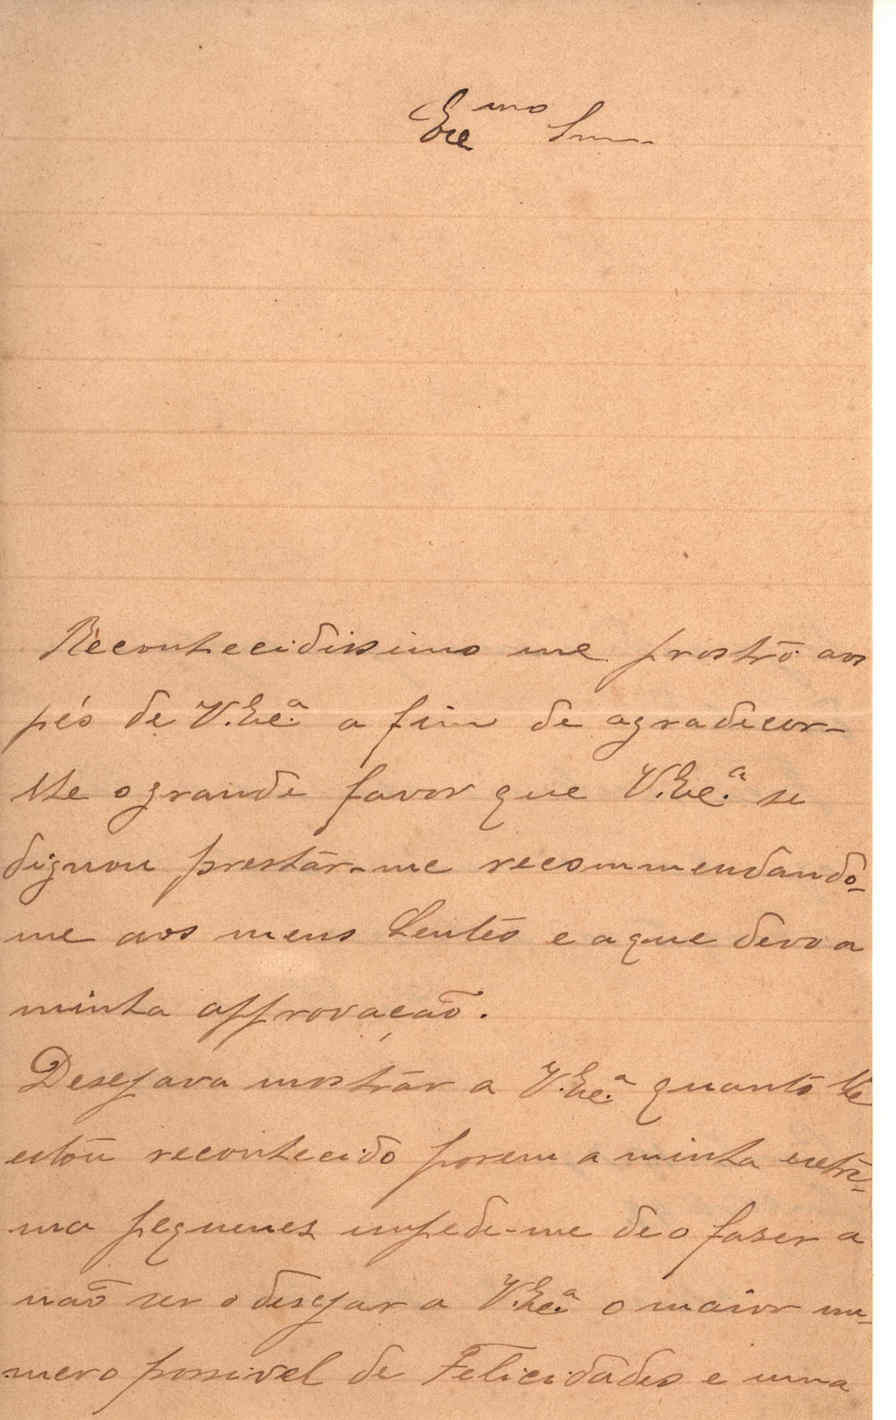 Exc.mo Snr.
Reconhecidissimo me prostro aos
pés de V. Exc.a a fim de agradecer-
lhe o grande favor que V. Exc.a se
dignou prestar-me recommendando-
me aos meus Lentes e a que devo a
minha approvação.
Desejava mostrar a V. Exc.a quanto lhe
estou reconhecido porem a minha extre-
ma pequenes impede-me de o faser a
não ser o desejar a V. Exc.a o maior nu-
mero possivel de Felicidades e uma